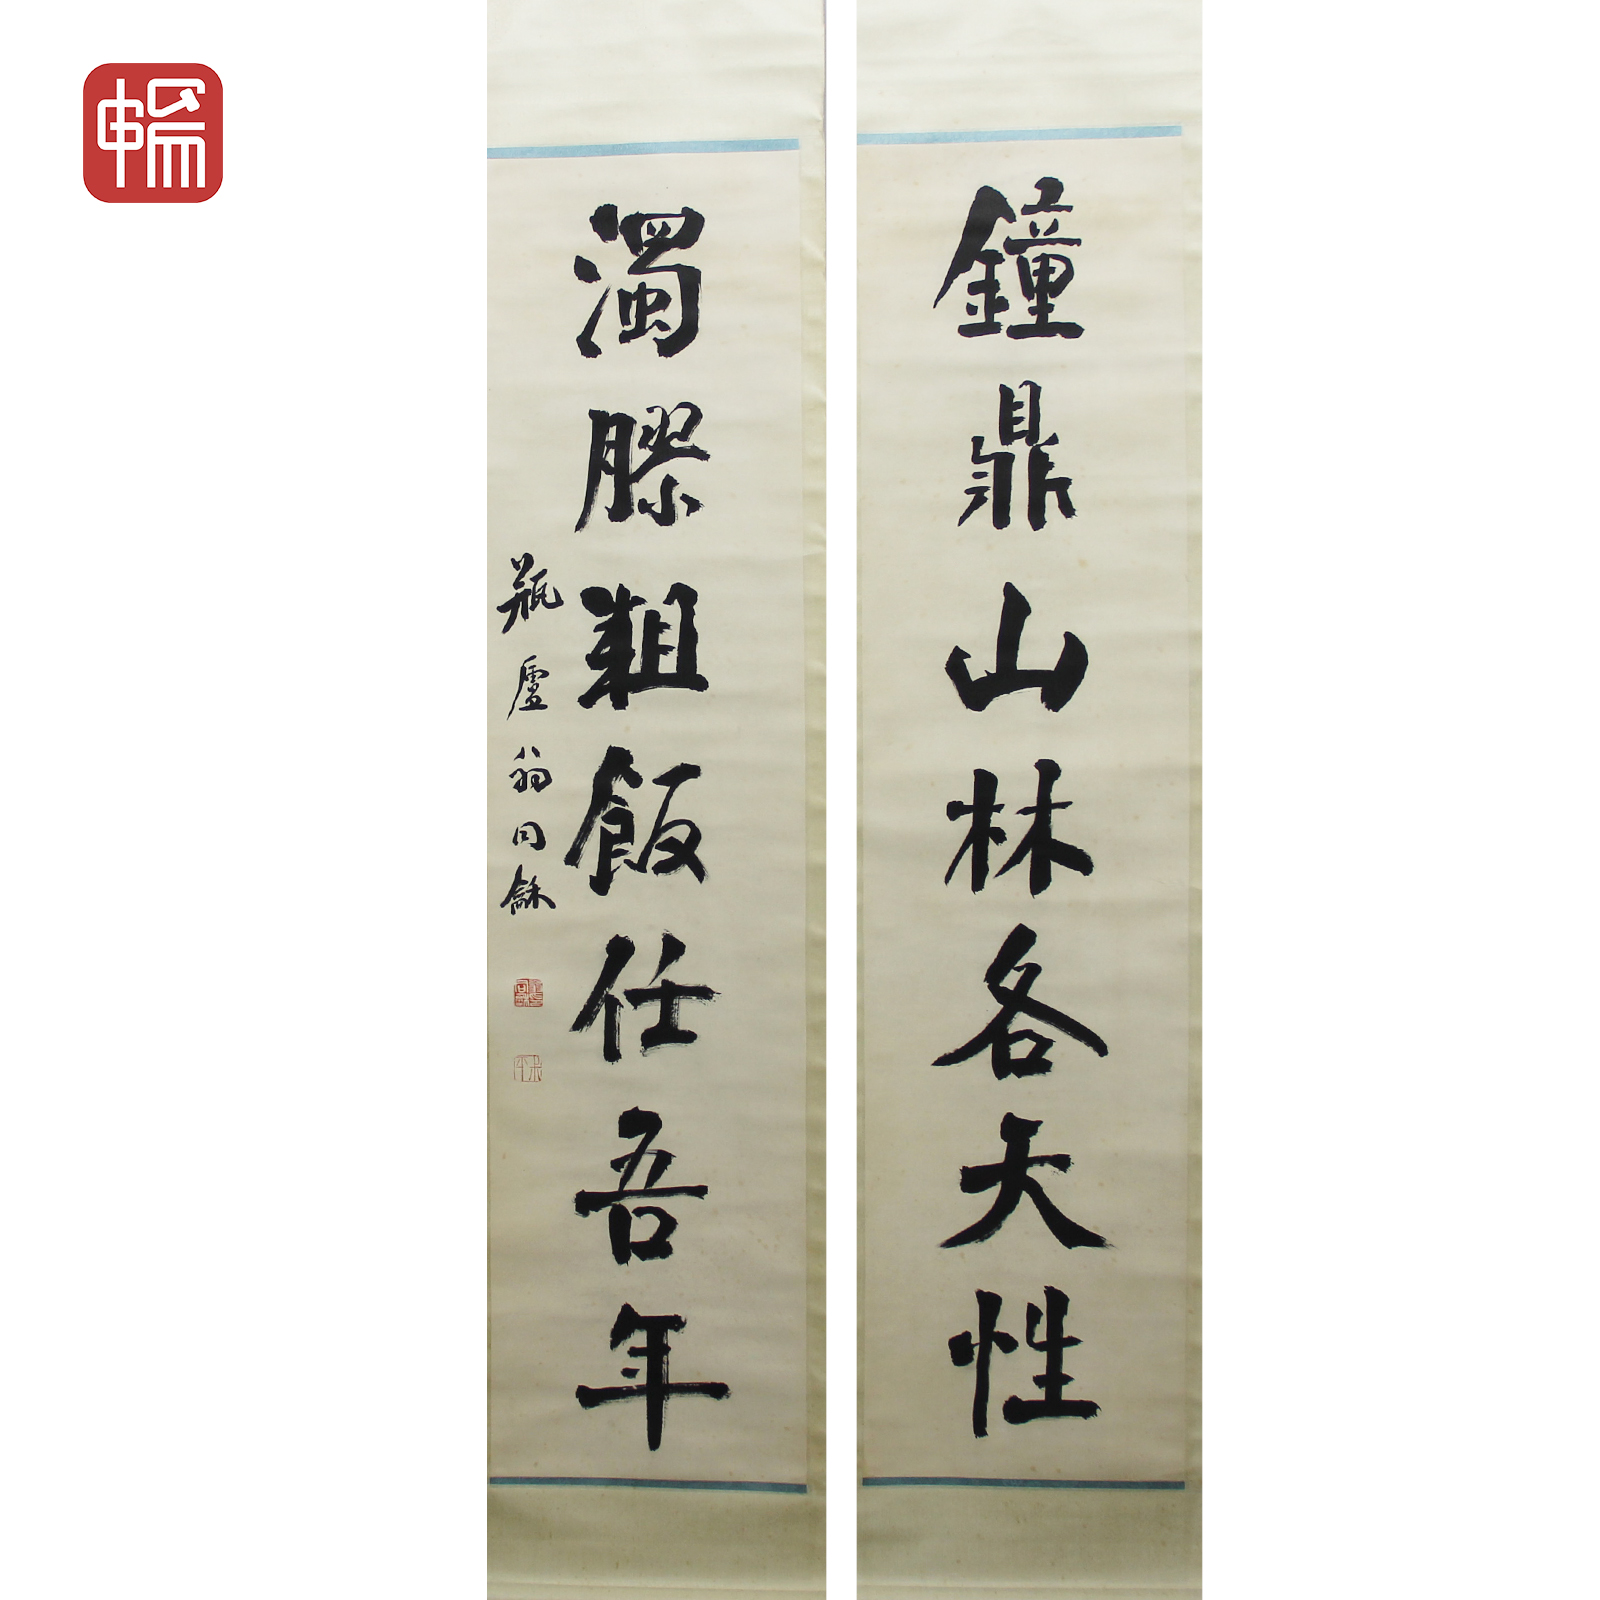 鐘鼎山林各天性
濁膠粗飯任吾年
瓶廬翁同龢